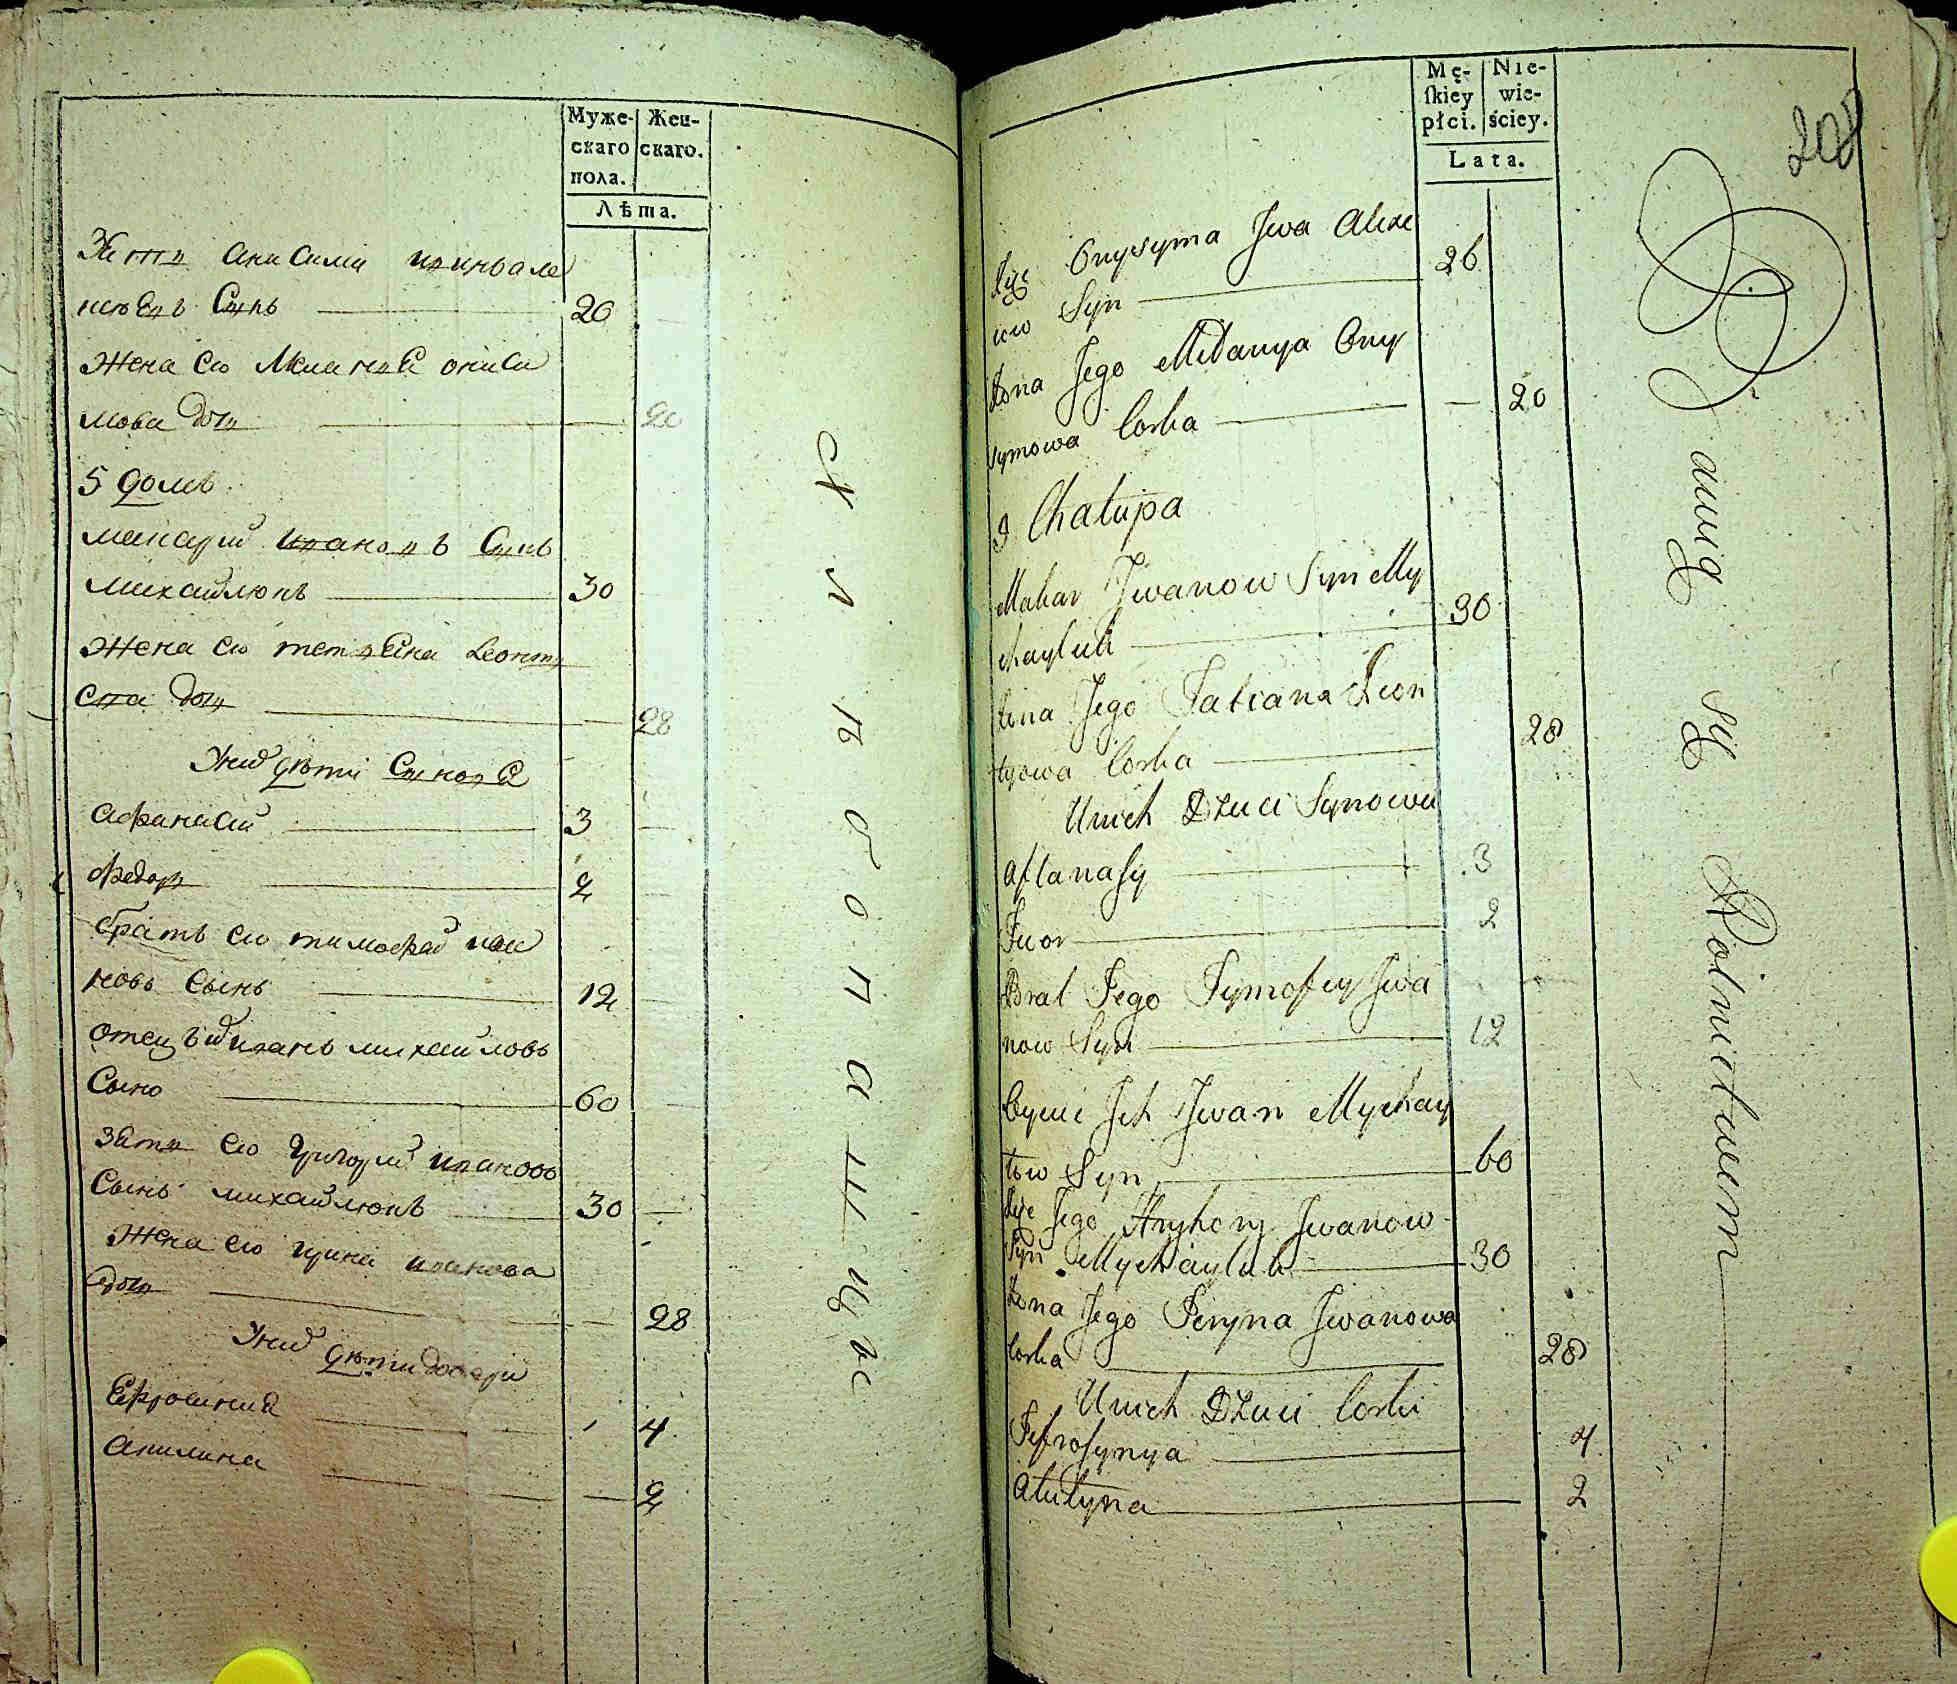 Муже-
скаго
пола.
Жен-
скаго.
Лѣта.
Зять Анисима
Сынъ 26
Жена его Мелания Ониси
мова дочь 20
5 домъ
Макарій Ивановъ Сынъ
Михайлюкъ 30
Жена его Леонть
ева дочь 28
У них дѣти Синовя
Афанасий 3
Федоръ 2
братъ его тимофей ива
новъ Сынъ 12
отецъ Иванъ михайловъ
Сынъ 60
зять его Григорий ивановъ
Сынъ михайлюкъ 30
Жена его ирина иванова
дочь 28
У них дѣти дочери
Ефросиния 4
Акилина 2
Хлѣбопашцы
Mę-
ſkiey
płci.
Nie-
wie-
ściey.
Lata.
208
Zięć Onysyma Jwa Alexe
iew Syn 26
Żona Jego Mełanya Ony
symowa Corka 20
5 Chałupa
Makar Jwanow Syn My
chayluk 30
Żona Jego Tatiana Leon
tyowa Corka 28
U nich Dzieci Synowie
Aftanasy 3
Fedor 2
Brat Jego Tymofiey Jwa
now Syn 12
Oyciec Ich Jwan Mychay
łow Syn 60
Zięć Jego Hryhory Jwanow
Syn Mychayluk 30
Żona Jego Jeryna Jwanowa
Corka 28
U nich Dzieci Corki
Jefrosynya 4
Akulyna 2
Bawią się Rolnictwem